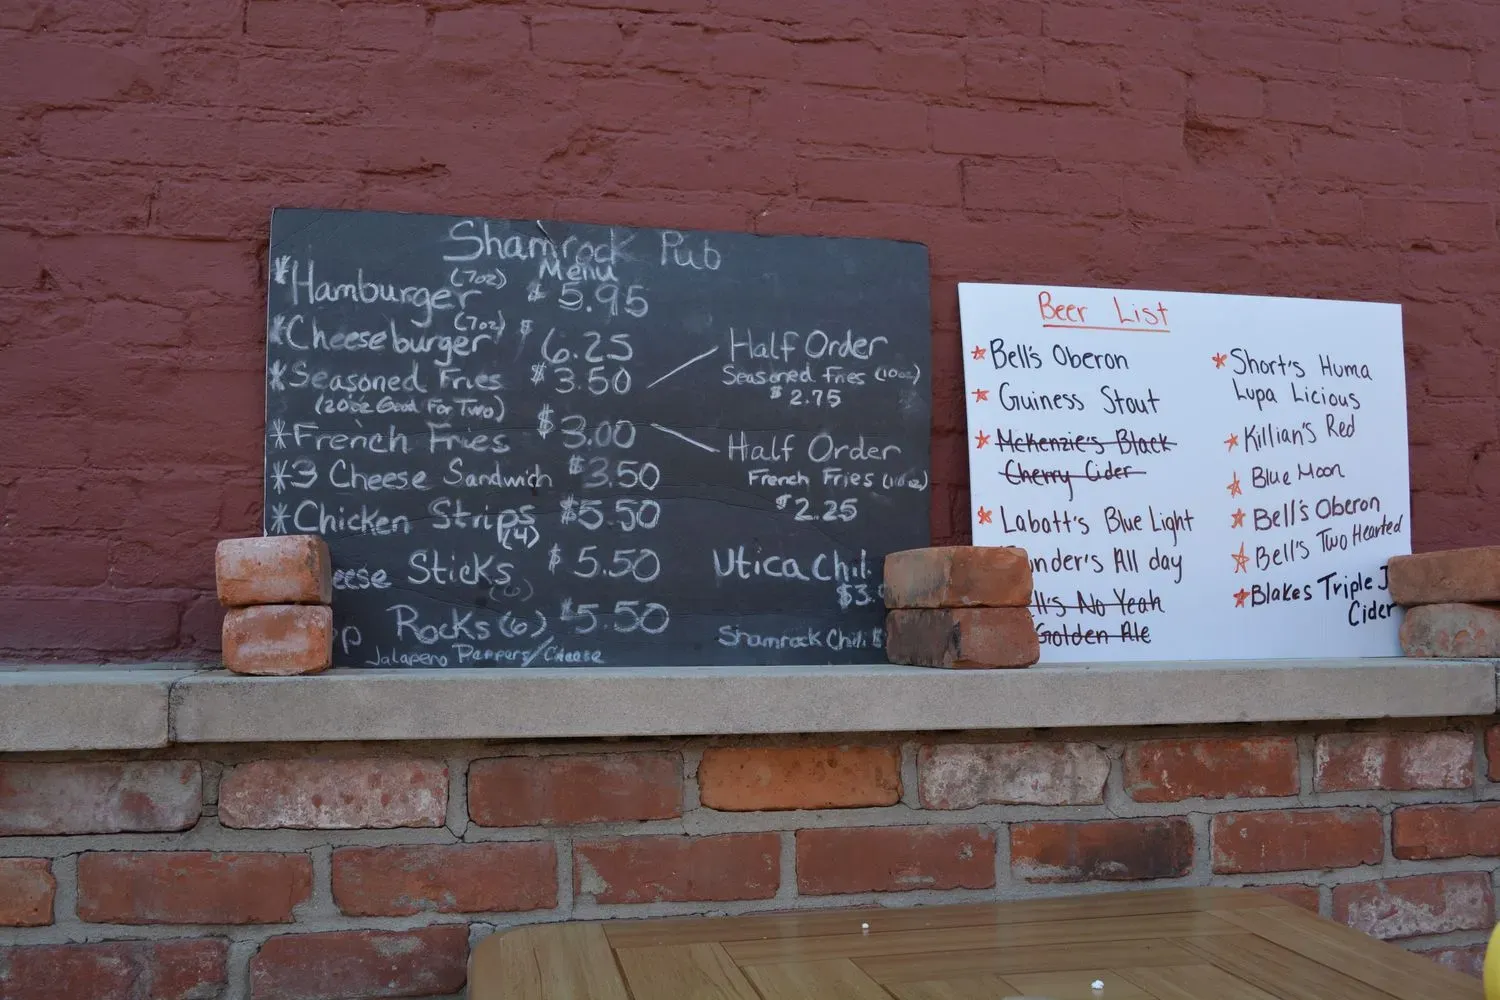 Shamrock Pub
Menu
*Hamburger (7oz) $5.95
*Cheeseburger (7oz) $6.25
*Seasoned Fries $3.50
(20oz Good For Two)
*French Fries $3.00
*3 Cheese Sandwich $3.50
*Chicken Strips $5.50
(4)
eese Sticks $5.50
(6)
pp Rocks (6) $5.50
Jalapeno Peppers/Cheese
Half Order
Seasoned Fries (10oz)
$2.75
Half Order
French Fries (10oz)
$2.25
Utica Chil
$3.
Shamrock Chili
Beer List
Bell's Oberon
Guiness Stout
McKenzie's Black
Cherry Cider
Labott's Blue Light
under's All day
ll's No Yeah
Golden Ale
Short's Huma
Lupa Licious
Killian's Red
Blue Moon
Bell's Oberon
Bell's Two Hearted
Blakes Triple J
Cider